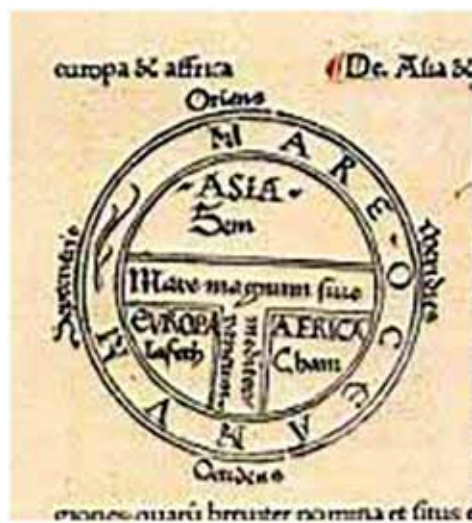 europa & affrica ¶De. Asia &
Oriens
MARE OCEANUM
ASIA
Sem
Mare magnum siue
EVROPA
Iafeth
AFRICA
Cham
Meridies
Occidens
giones quarū breuiter nomina et situs